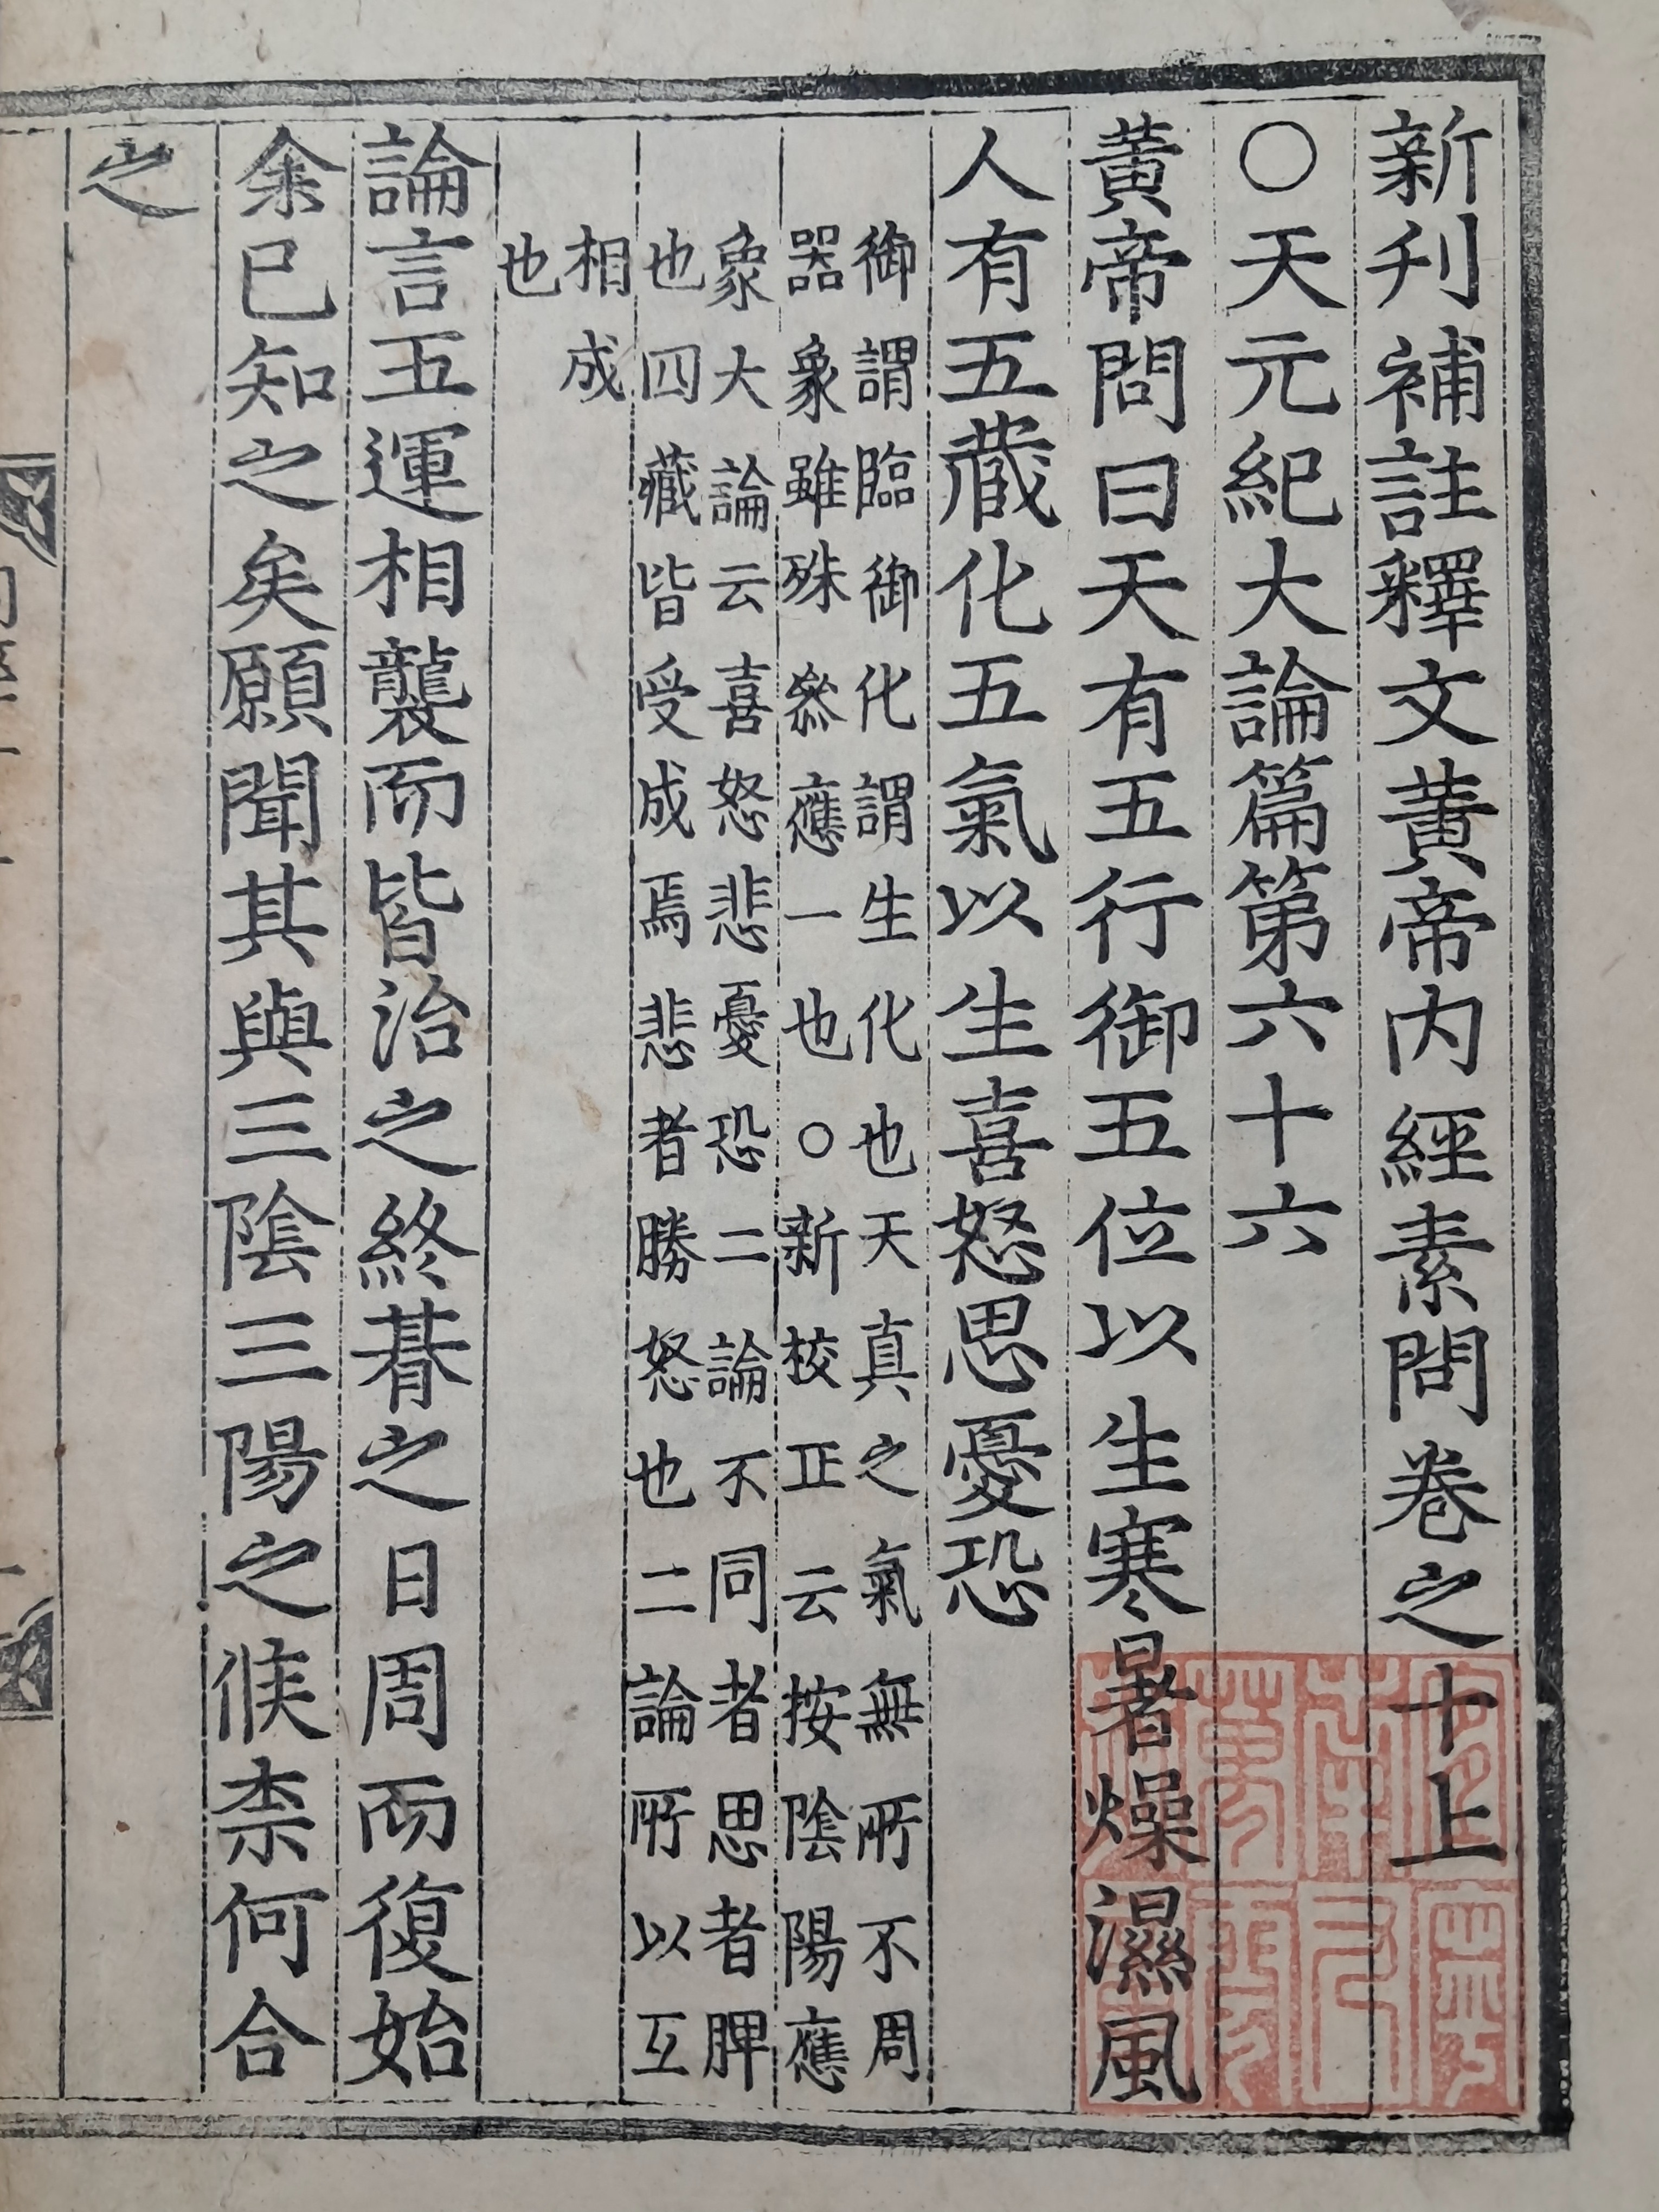 新刋補註釋文黃帝內經素問卷之十上
〇天元紀大論篇第六十六
黃帝問曰天有五行御五位以生寒暑燥濕風
人有五藏化五氣以生喜怒思憂恐
御謂臨御化謂生化也天真之氣無所不周
器象雖殊叅應一也〇新校正云按陰陽應
象大論云喜怒悲憂恐二論不同者思者脾
也四藏皆受成焉悲者勝怒也二論所以互
相成
也
論言五運相襲而皆治之終朞之日周而復始
余巳知之矣願聞其與三陰三陽之候柰何合
之